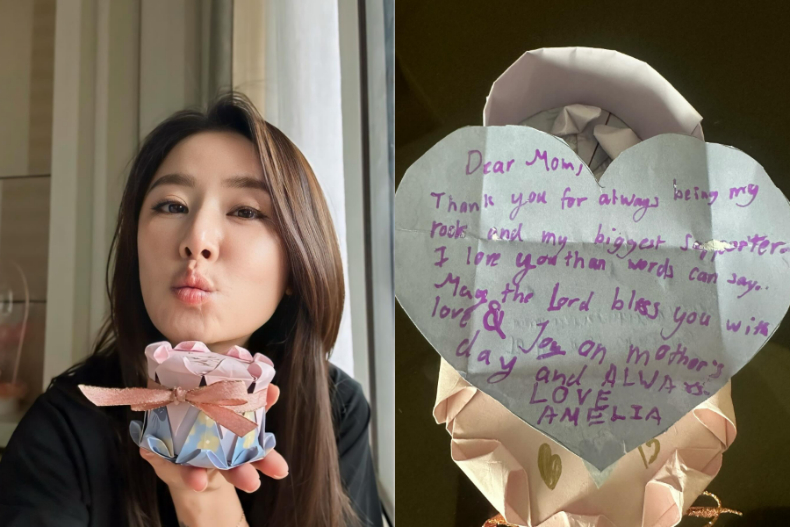 Dear Mom,
Thank you for always being my
rock and my biggest supporter.
I love you than words can say..
May the Lord bless you with
love & Joy on mother's
day and ALWAYS
LOVE
AMELIA